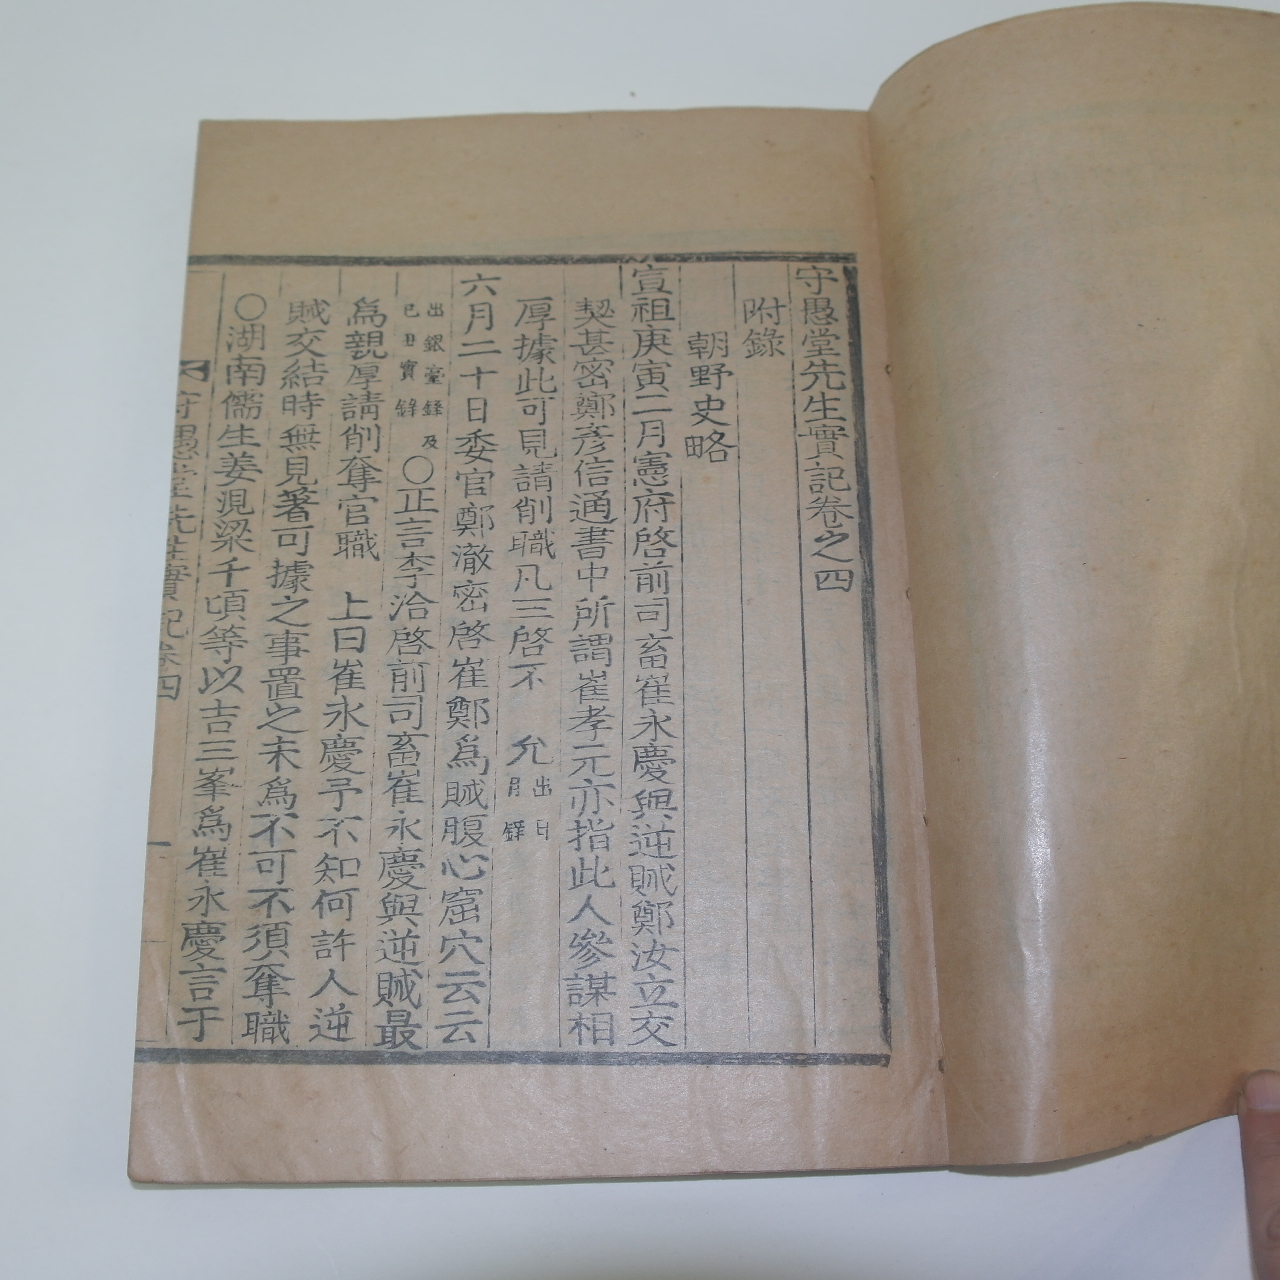 守愚堂先生實記卷之四
附錄
朝野史略
宣祖庚寅二月憲府啓前司畜崔永慶與逆賊鄭汝立交
契甚密鄭彥信通書中所謂崔孝元亦指此人參謀相
厚據此可見請削職凡三啓不 允出日月錄
六月二十日委官鄭澈密啓崔鄭爲賊腹心窟穴云云
出銀臺錄及己丑實錄〇正言李洽啓前司畜崔永慶與逆賊最
爲親厚請削奪官職 上曰崔永慶予不知何許人逆
賊交結時無見著可據之事置之未爲不可不須奪職
〇湖南儒生姜涀梁千頃等以吉三峯爲崔永慶言于
守愚堂先生實記卷四 一